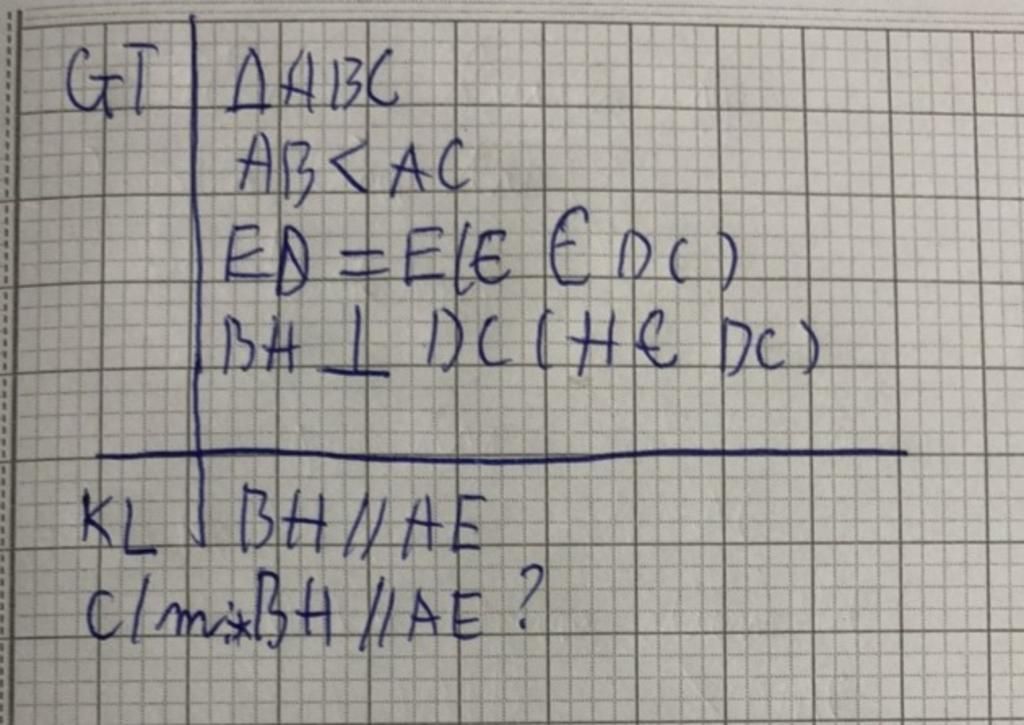 GT ΔABC
AB < AC
ED = E(E ∈ DC)
BH ⊥ DC (H ∈ DC)
KL BH // AE
C/m: BH // AE ?